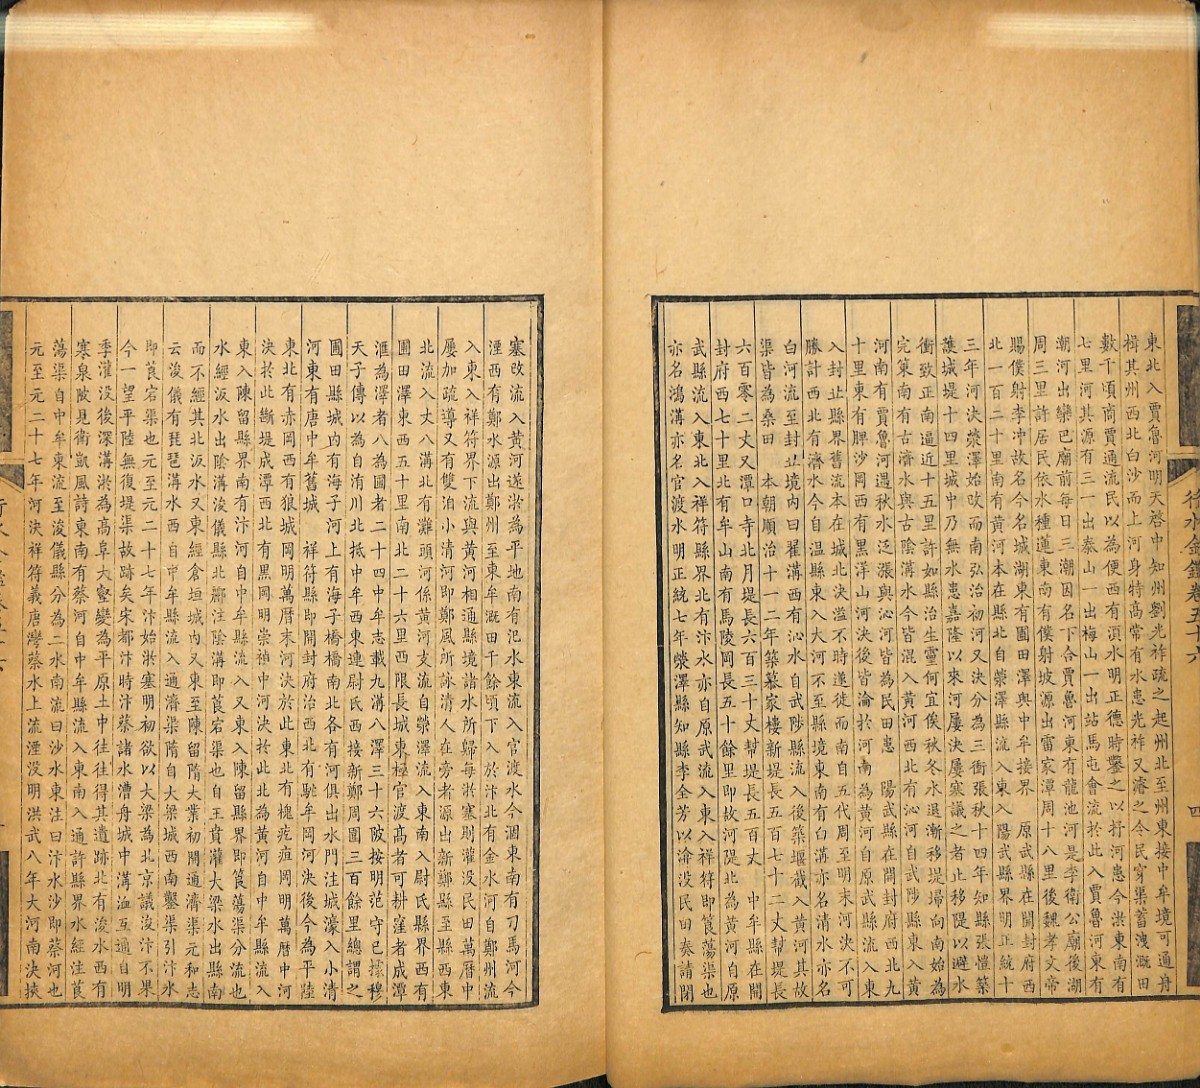 行水金鑑卷五十六
四
東北入賈魯河明天啓中知州劉光祚疏之起州北至州東接中牟境可通舟
楫其州西北白沙而上河身特高常有水患光祚又濬之今民穿渠蓄洩溉田
數千頃商賈通流民以為便西有湏水明正德時鑿之以抒河患今洪東南有
七里河其源有三一出泰山一出梅山一出站馬屯會流於此入賈魯河東有
潮河出欒巴廟前每日三潮因名下合賈魯河東有龍池河是李衛公廟後湖
周三里許居民依水種蓮東南有僕射坡源出雷家潭周十八里後魏孝文帝
賜僕射李冲故名今名城湖東有圃田澤與中牟接界　原武縣在開封府西
北一百二十里南有黄河本在縣北自滎澤縣流入東入陽武縣界明正統十
三年河決滎澤始改而南弘治初河又決分為三衝張秋十四年知縣張愷築
護城堤十四里城中乃無水患嘉隆以來河屢決屢寒議之者止移隄以避水
衝致正南逼近十五里許如縣治生靈何宜俟秋冬水退漸移堤埽向南始為
完策南有古濟水與古陰溝水今皆混入黄河西北有沁河自武陟縣東入黄
河南有賈魯河遇秋水泛漲與沁河皆為民田患　陽武縣在開封府西北九
十里東有脾沙岡西有黒洋山河決後皆淪於河南為黄河自原武縣流入東
入封丘縣界舊流本在城北決溢不時遂徙而南自五代周至明末河決不可
勝計西北有濟水今自温縣東入大河不至縣境東南有白溝亦名清水亦名
白河流至封丘境内曰翟溝西有沁水自武陟縣流入後築堰截入黄河其故
渠皆為桑田　本朝順治十一二年築慕家樓新堤長五百七十二丈幇堤長
六百零二丈又潭口寺北月堤長六百三十丈幇堤長五百一丈　中牟縣在開
封府西七十里北有牟山南有馬陵岡長五十餘里即故河隄北為黄河自原
武縣流入東北入祥符縣界北有汴水亦自原武流入東入祥符即筤蕩渠也
亦名鴻溝亦名官渡水明正統七年滎澤縣知縣李金芳以淪没民田奏請閉
塞改流入黄河遂淤為平地南有汜水東流入官渡水今涸東南有刀馬河今
湮西有鄭水源出鄭州至東牟溉田千餘頃下入於汴北有金水河自鄭州流
入東入祥符界下流與黄河相通縣境諸水所歸每淤塞則灌没民田萬曆中
屢加疏導又有雙洎小清河即鄭風所詠清人在旁者源出新鄭縣至縣西東
北流入丈八溝北有灘頭河係黄河支流自滎澤流入東南入尉氏縣界西有
圃田澤東西五十里南北二十六里西限長城東極官渡髙者可耕窪者成潭
滙為澤者八為圃者二十四中牟志載九溝八澤三十六陂按明范守已據穆
天子傳以為自洧川北抵中牟西東連尉氏西接新鄭周圍三百餘里總謂之
圃田縣城内有海子河上有海子橋橋南北各有河俱出水門注城濠入小清
河東有唐中牟舊城　祥符縣即開封府治西北有駝牟岡河決後今為平陸
東北有赤岡西有狼城岡明萬曆末河決於此東北有槐疙疸岡明萬曆中河
決於此斷堤成潭西北有黒岡明崇禎中河決於此北為黄河自中牟縣流入
東入陳留縣界南有汴河自中牟縣流入又東入陳留縣界即筤蕩渠分流也
水經汳水出陰溝浚儀縣北酈注陰溝即筤宕渠也自王賁灌大梁水出縣南
而不經其北汳水又東經倉垣城内又東至陳留隋大業初開通濟渠元和志
云浚儀有琵琶溝水西自中牟縣流入通濟渠隋自大梁城西南鑿渠引汴水
即莨宕渠也元至元二十七年汴始淤塞明初欲以大梁為北京議浚汴不果
今一望平陸無復堤渠故跡矣宋都汴時汴蔡諸水漕舟城中溝洫互通自明
季灌没後深溝淤為高阜大壑變為平原土中往往得其遺跡北有浚水西有
寒泉陂見衛凱風詩東南有蔡河自中牟縣流入東南入通許縣界水經注莨
蕩渠自中牟東流至浚儀縣分為二水南流曰沙水東注曰汴水沙即蔡河也
元至元二十七年河決祥符義唐灣蔡水上流湮没明洪武八年大河南決挾